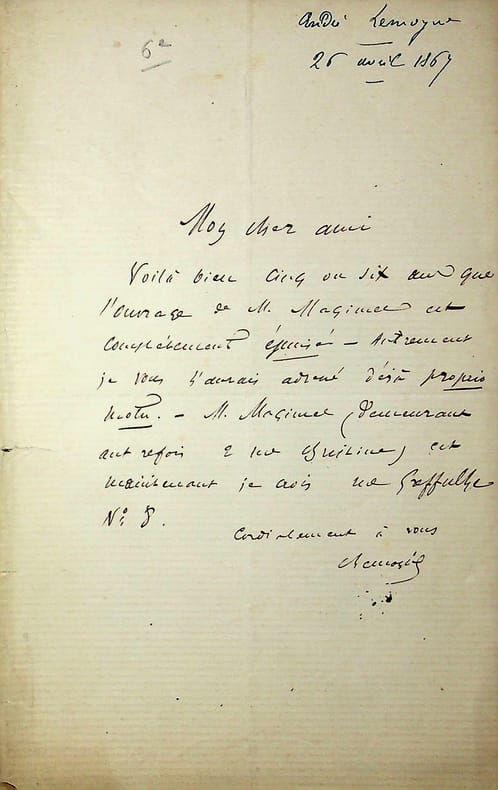 André Lemoyne
6e
26 avril 1867
Mon cher ami
Voilà bien cinq ou six ans que
l'ouvrage de M. Magimel est
complètement épuisé – Autrement
je vous l'aurais adressé déjà proprio
motu. – M. Magimel (demeurant
autrefois 2 rue Christine) est
maintenant je crois rue Greffulhe
No 8.
Cordialement à vous